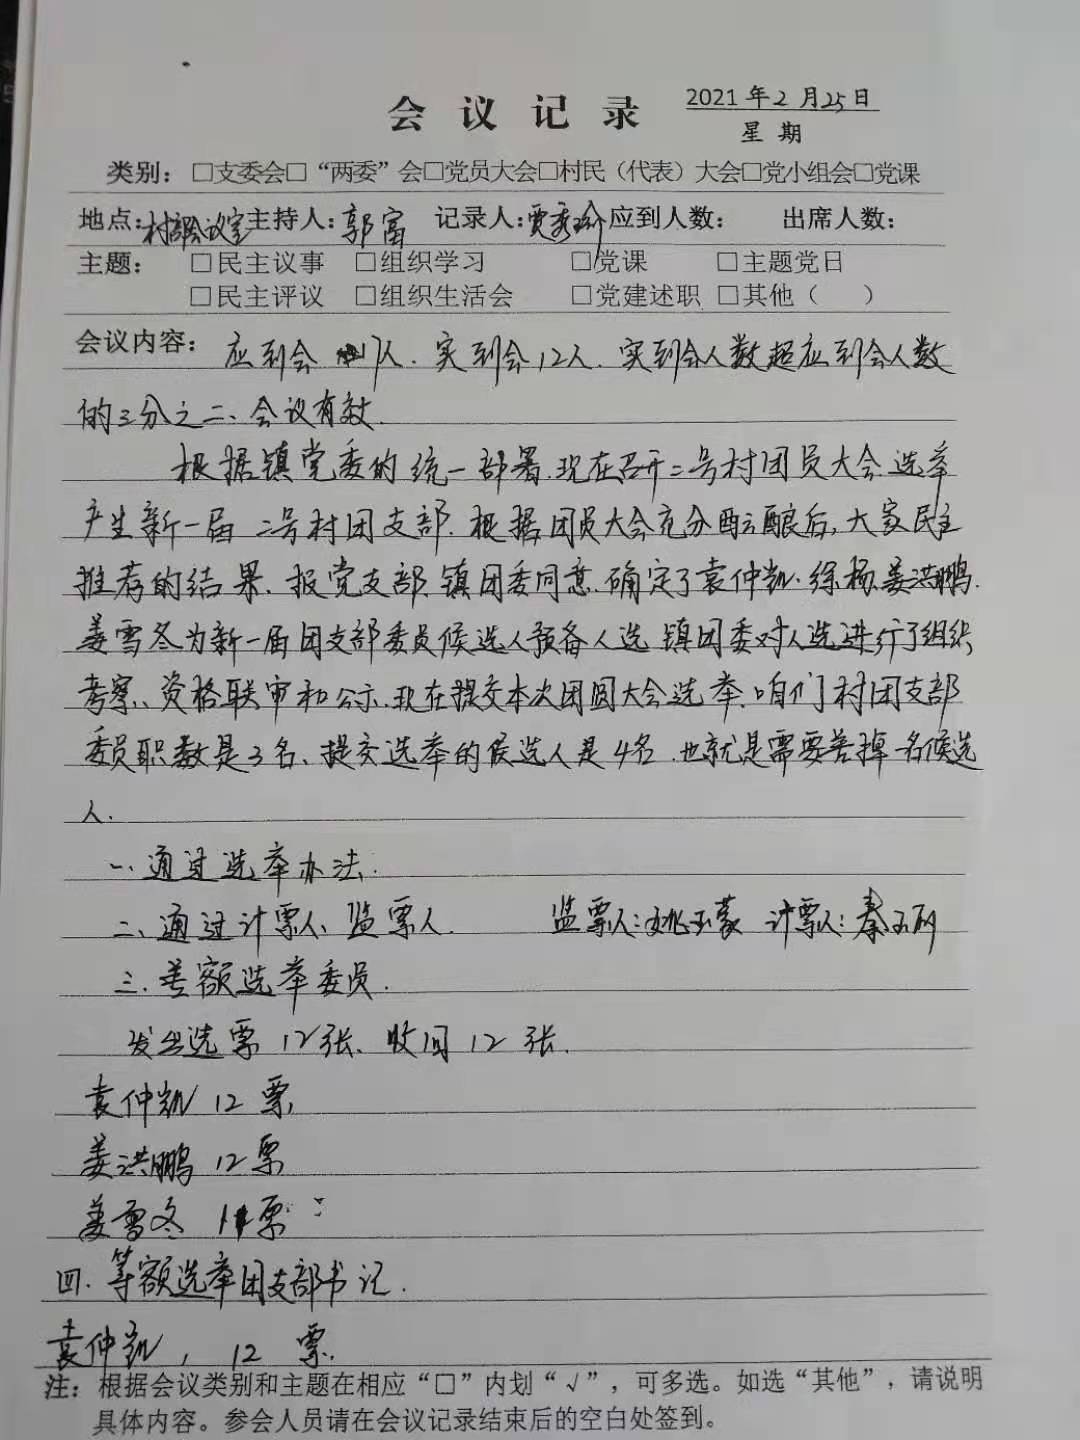 会议记录 2021年2月25日
星期
类别：□支委会□“两委”会□党员大会□村民（代表）大会□党小组会□党课
地点：村部会议室主持人：郭富 记录人：贾秀 应到人数： 出席人数：
主题： □民主议事 □组织学习 □党课 □主题党日
□民主评议 □组织生活会 □党建述职 □其他（ ）
会议内容： 应到会 人．实到会12人．实到会人数超应到会人数
的三分之二、会议有效．
根据镇党委的统一部署．现在召开二号村团员大会．选举
产生新一届二号村团支部．根据团员大会充分酝酿后，大家民主
推荐的结果．报党支部、镇团委同意．确定了袁仲凯．徐杨、姜洪鹏．
姜雪冬为新一届团支部委员候选人预备人选．镇团委对人选进行了组织
考察、资格联审和公示．现在提交本次团圆大会选举．咱们村团支部
委员职数是3名、提交选举的候选人是4名．也就是需要差掉一名候选
人．
一、通过选举办法．
二、通过计票人、监票人． 监票人：姚玉蒙 计票人：秦玉
三．差额选举委员．
发出选票12张、收回12张．
袁仲凯 12票
姜洪鹏 12票
姜雪冬 票
四．等额选举团支部书记．
袁仲凯，12票．
注：根据会议类别和主题在相应“□”内划“√”，可多选。如选“其他”，请说明
具体内容。参会人员请在会议记录结束后的空白处签到。